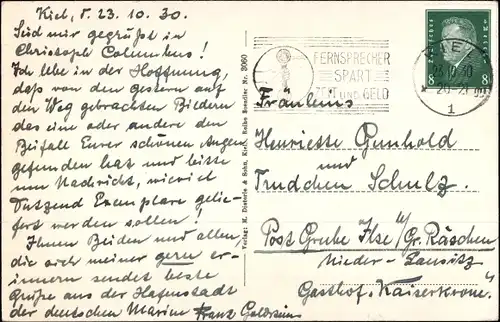 Kiel, d. 23.10.30.
Seid mir gegrüßt in
Christoph Columbus!
Ich lebe in der Hoffnung,
daß von den gestern auf
den Weg gebrachten Bildern
das eine oder andere den
Beifall Eurer schönen Augen
gefunden hat und bitte
um Nachricht, wieviel
Dutzend Exemplare gelie-
fert werden sollen!
Ihnen Beiden und allen,
die sich meiner gern er-
innern sendet beste
Grüße aus der Hafenstadt
der deutschen Marine Franz
Verlag: H. & Sohn, Kiel. Nr. 3060
FERNSPRECHER
SPART
ZEIT UND GELD
KIEL
23.10.30
20-21
1
DEUTSCHES REICH
8 8
Fräuleins
Henriette Gunhold
und
Trudchen Schulz
Post Grube Ilse b/ Gr. Räschen
Nieder-Lausitz
Gasthof "Kaiserkrone"